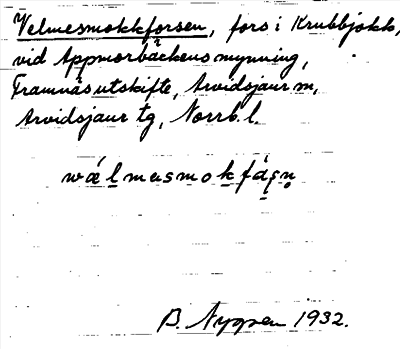 Velmesmokkforsen, fors i Krubbjokk,
vid Appmorbäckens mynning,
Framnäs utskifte, Arvidsjaur m,
Arvidsjaur tg, Norrb. l.
wǽlmasmokfáṣṇ
B. Nygren 1932.